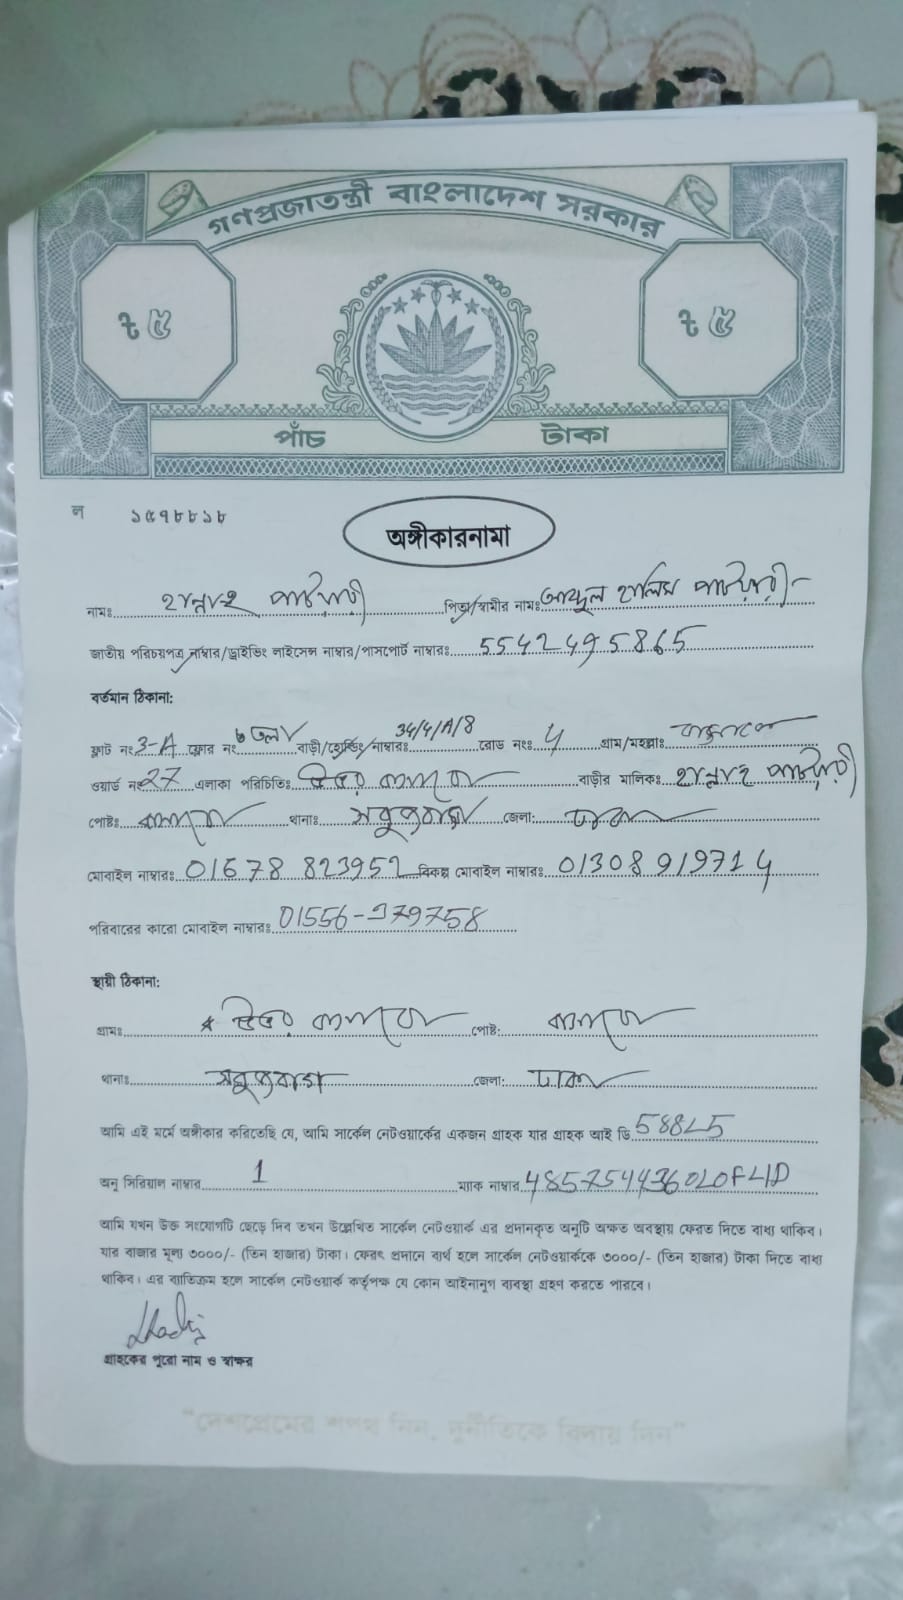 গণপ্রজাতন্ত্রী বাংলাদেশ সরকার
৳ ৫ ৳ ৫
পাঁচ টাকা
ল ১৫৭৮৮১৮
অঙ্গীকারনামা
নামঃ হান্নান পাটওয়ারী পিতা/স্বামীর নামঃ আব্দুল হালিম পাটওয়ারী
জাতীয় পরিচয়পত্র নাম্বার/ড্রাইভিং লাইসেন্স নাম্বার/পাসপোর্ট নাম্বারঃ 5542495865
বর্তমান ঠিকানা:
ফ্লাট নং 3-A ফ্লোর নং তলা বাড়ী/হোল্ডিং/নাম্বারঃ 34/4/A/8 রোড নংঃ 4 গ্রাম/মহল্লাঃ
ওয়ার্ড নং 27 এলাকা পরিচিতিঃ উত্তর বাসাবো বাড়ীর মালিকঃ হান্নান পাটওয়ারী
পোষ্টঃ বাসাবো থানাঃ সবুজবাগ জেলা: ঢাকা
মোবাইল নাম্বারঃ 01678 823952 বিকল্প মোবাইল নাম্বারঃ 01308 919714
পরিবারের কারো মোবাইল নাম্বারঃ 01556-379758
স্থায়ী ঠিকানা:
গ্রামঃ উত্তর বাসাবো পোষ্ট: বাসাবো
থানাঃ সবুজবাগ জেলা: ঢাকা
আমি এই মর্মে অঙ্গীকার করিতেছি যে, আমি সার্কেল নেটওয়ার্কের একজন গ্রাহক যার গ্রাহক আই ডি
অনু সিরিয়াল নাম্বার 1 ম্যাক নাম্বার
আমি যখন উক্ত সংযোগটি ছেড়ে দিব তখন উল্লেখিত সার্কেল নেটওয়ার্ক এর প্রদানকৃত অনুটি অক্ষত অবস্থায় ফেরত দিতে বাধ্য থাকিব।
যার বাজার মূল্য ৩০০০/- (তিন হাজার) টাকা। ফেরৎ প্রদানে ব্যর্থ হলে সার্কেল নেটওয়ার্ককে ৩০০০/- (তিন হাজার) টাকা দিতে বাধ্য
থাকিব। এর ব্যতিক্রম হলে সার্কেল নেটওয়ার্ক কর্তৃপক্ষ যে কোন আইনানুগ ব্যবস্থা গ্রহণ করতে পারবে।
গ্রাহকের পুরো নাম ও স্বাক্ষর
"দেশপ্রেমের শপথ নিন, দুর্নীতিকে বিদায় দিন"